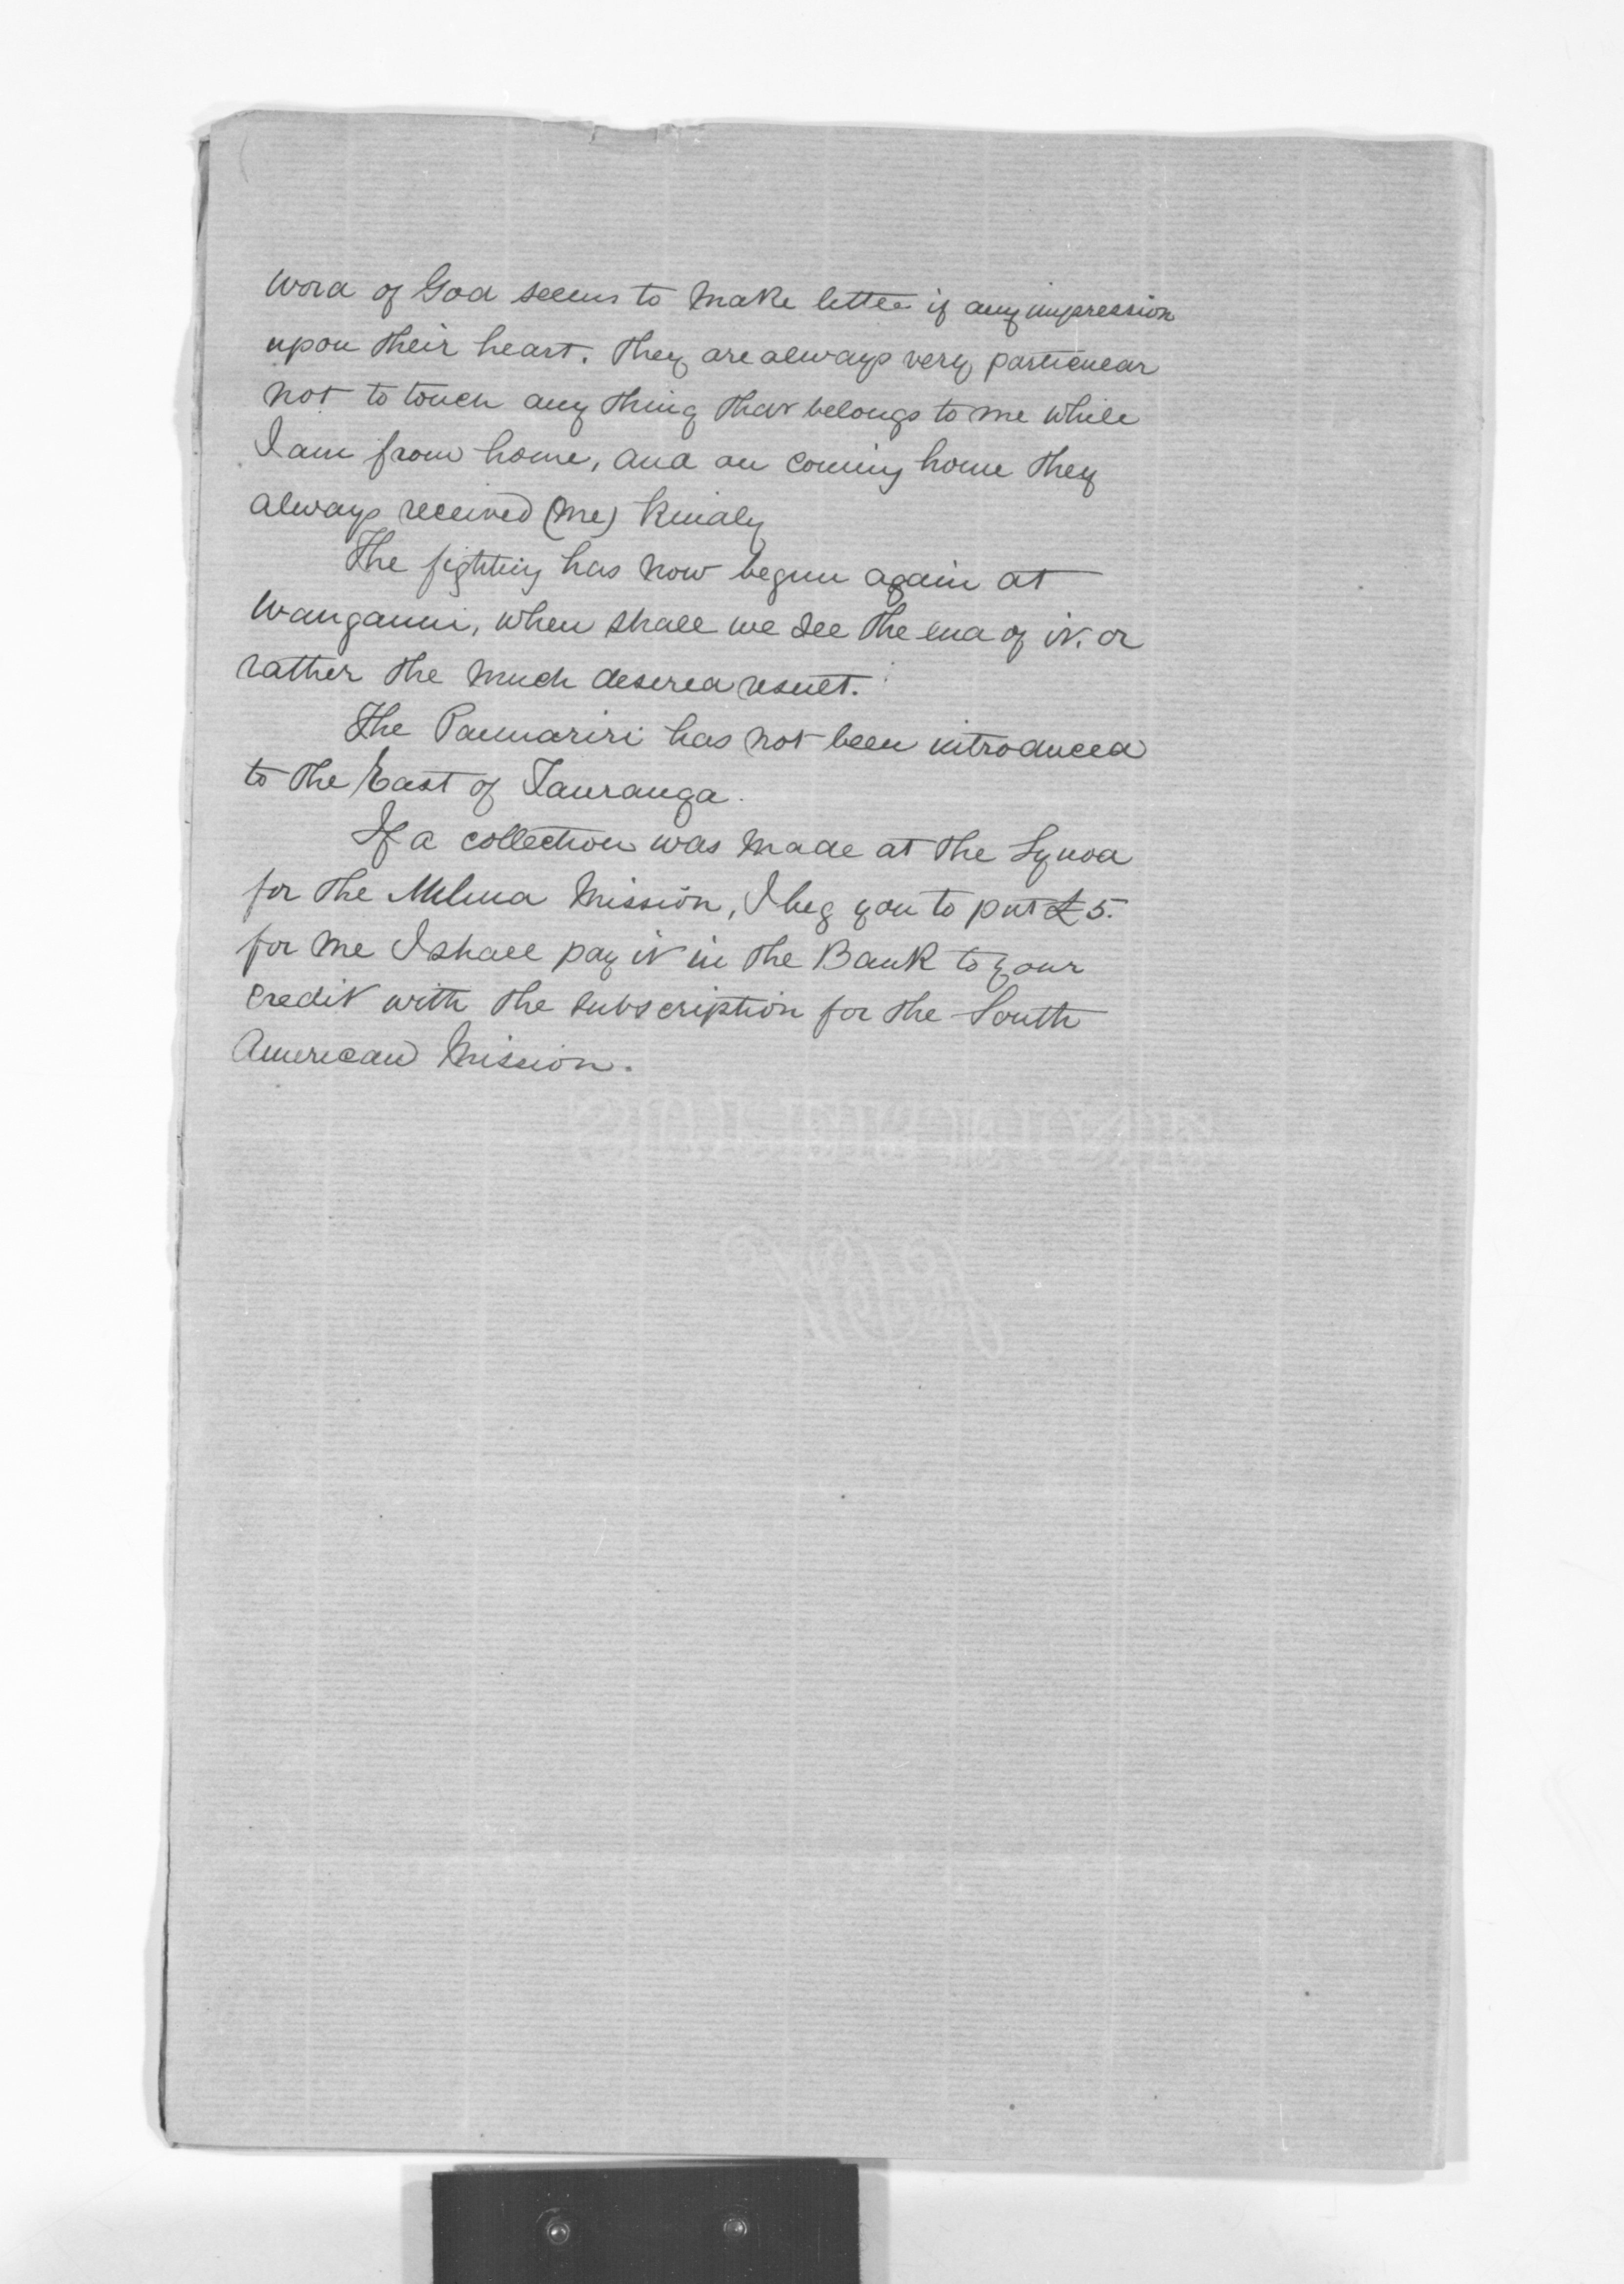 word of God seems to make little if any impression
upon their heart. They are always very particular
not to touch any thing that belongs to me while
I am from home, and on coming home they
always received (me) kindly
The fighting has now begun again at
Wanganui, when shall we see the end of it. or
rather the much desired result.
The Paimariri has not been introduced
to the East of Tauranga.
If a collection was made at the Synod
for the Milma Mission, I beg you to put £5.
for me I shall pay it in the Bank to your
credit with the subscription for the South
American Mission.